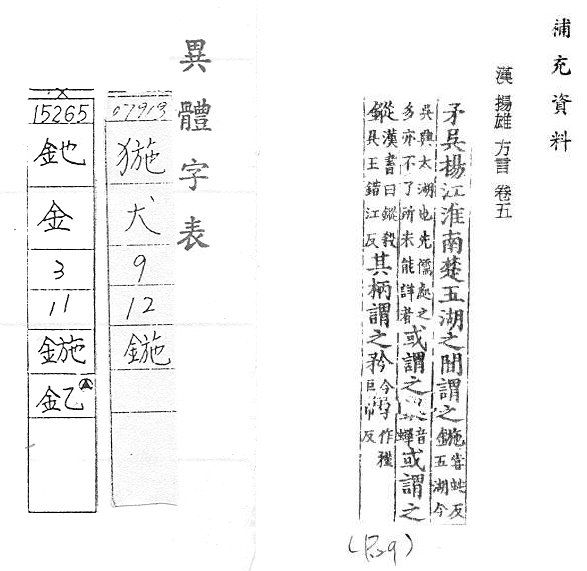 補充資料
漢 揚雄 方言 卷五
矛吳楊江淮南楚五湖之間謂之鍦嘗蛇反五湖今
吳興太湖也先儒處之多亦不了所未能詳者或謂之音蟬或謂之
鏦漢書曰鏦殺吳王錯江反其柄謂之矜今字作巨巾反
異體字表
07919
犬
9
12
鍦
15265
釶
金
3
11
鍦
釔